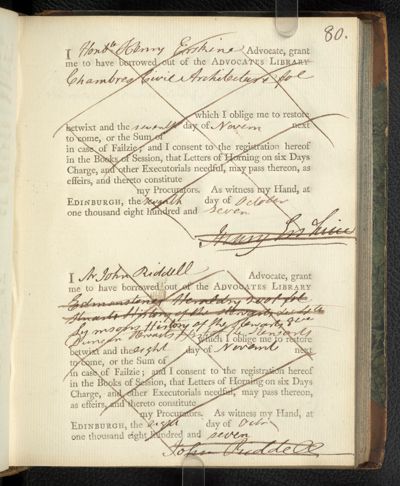 80.
I Honble Henry Erskine Advocate, grant
me to have borrowed out of the ADVOCATES LIBRARY
Chambres Civil Architecture fol
which I oblige me to restore
betwixt and the seventh day of Novem next
to come, or the Sum of
in case of Failzie; and I consent to the registration hereof
in the Books of Session, that Letters of Horning on six Days
Charge, and other Executorials needful, may pass thereon, as
effeirs, and thereto constitute
my Procurators. As witness my Hand, at
EDINBURGH, the seventh day of October
one thousand eight hundred and seven
Henry Erskine
I Mr John Riddell Advocate, grant
me to have borrowed out of the ADVOCATES LIBRARY
Edmonstones Heraldry 2 vol fol
Stuarts History of the Stewarts
Symsons History of the Stewarts
Duncan Stewarts Stewarts
which I oblige me to restore
betwixt and the eight day of Novemr next
to come, or the Sum of
in case of Failzie; and I consent to the registration hereof
in the Books of Session, that Letters of Horning on six Days
Charge, and other Executorials needful, may pass thereon,
as effeirs, and thereto constitute
my Procurators. As witness my Hand, at
EDINBURGH, the eight day of Octr
one thousand eight hundred and seven
John Riddell